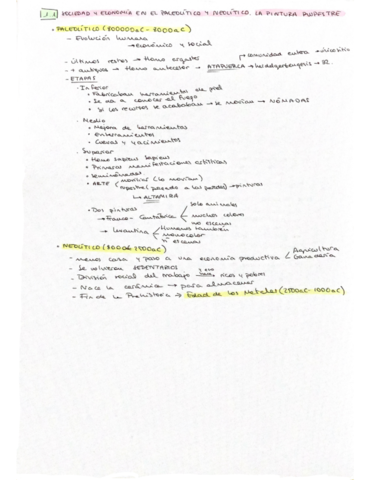 1.1 SOCIEDAD Y ECONOMÍA EN EL PALEOLÍTICO Y NEOLÍTICO. LA PINTURA RUPESTRE
• PALEOLÍTICO (800000aC - 8000aC)
- Evolución humana
→ económico y social
- últimos restos → Homo ergaster
- + antiguos → Homo antecesor → ATAPUERCA → heidelbergensis →
- ETAPAS
· Inferior
• Fabricaban herramientas de piedra
• Se da a conocer el fuego
• Si los recursos se acababan → se movían → NÓMADAS
· Medio
• Mejora de herramientas
• Enterramientos
• Cuevas y yacimientos
· Superior
• Homo sapiens sapiens
• Primeras manifestaciones artísticas
• Seminómadas
• ARTE mobiliar (lo movían)
rupestre (pegado a las paredes) → pinturas
↳ ALTAMIRA
• Dos pinturas
→ Franco-Cantábrica
solo animales
muchos colores
no escenas
→ Levantina
Humanos también
monocolor
sí escenas
• NEOLÍTICO (8000 - 2500aC)
- menos caza y paso a una economía productiva
Agricultura
Ganadería
- Se volvieron SEDENTARIOS
- División social del trabajo → ricos y pobres
- Nace la cerámica → para almacenar
- Fin de la Prehistoria → Edad de los Metales (2500aC - 1000aC)